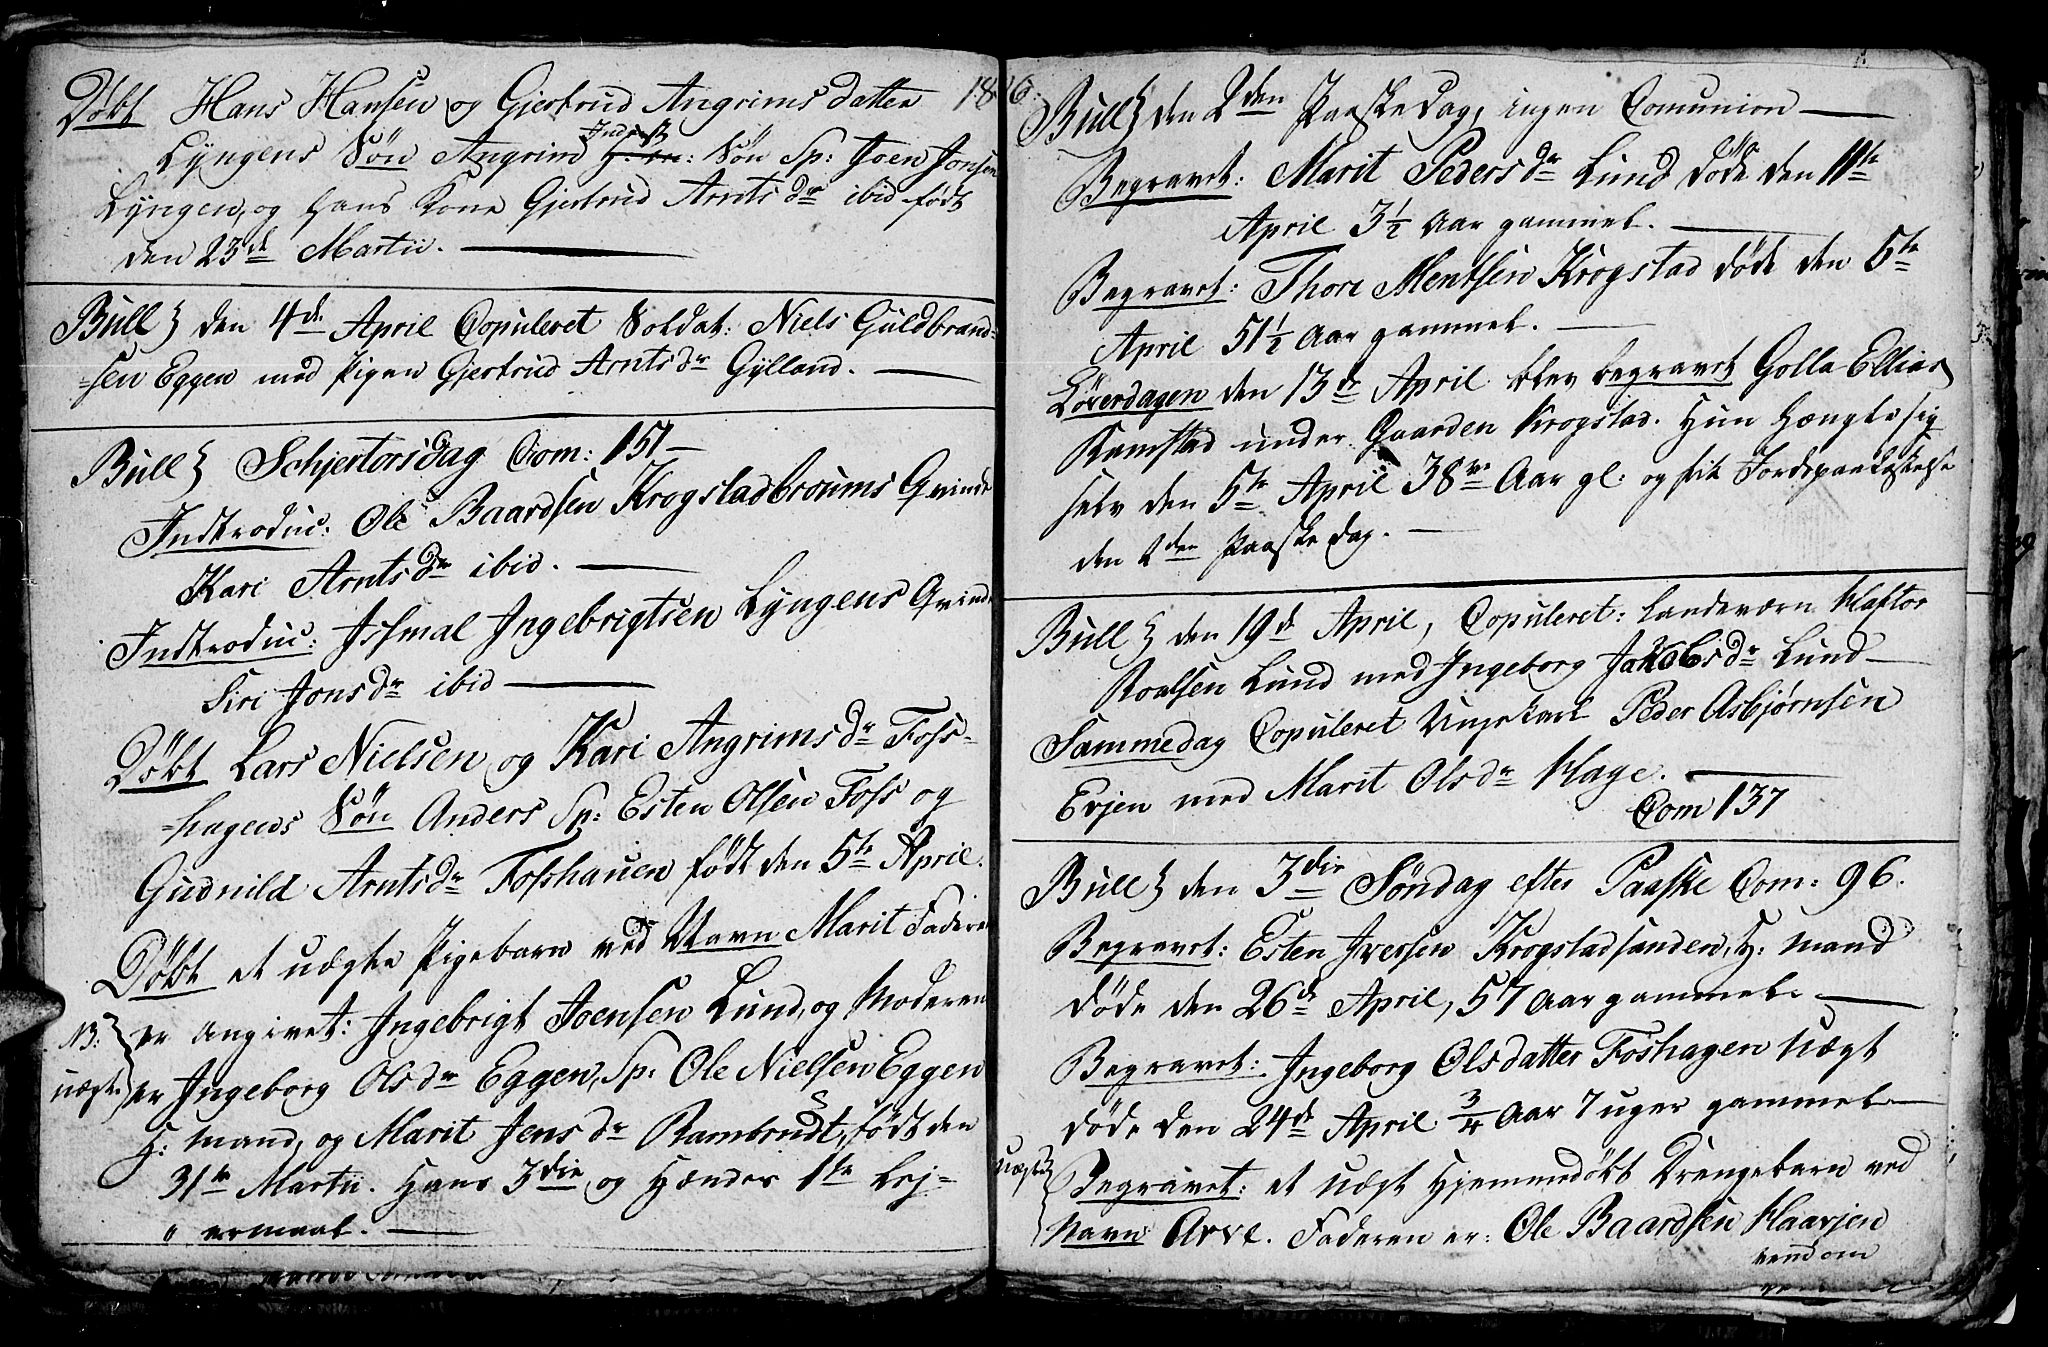 Døbt Hans Hansen og Gjertrud Angrims datter 18
Lyngens Søn Angrim Søn Sp: Joen Jonsen
Lyngen, og hans Kone Gjertrud Arnts dr ibid født
den 23de Martii.
Bull} den 4de April Copuleret Soldat: Niels Guldbrand-
-sen Eggen med Pigen Gjertrud Arnts dr Gylland.
Bull} Schjertorsdag Com: 151
Indtroduc: Ole Baardsen Krogstadbroums Qvinde
Kari Arnts dr ibid.
Indtroduc: Issmal Ingebrigtsen Lyngens Qvinde
Siri Jons dr ibid
Døbt Lars Nielsen og Kari Angrims dr Foss-
-hagens Søn Anders Sp: Esten Olsen Foss og
Gudnild Arnts dr Fosshauen født den 5te April.
Døbt et uægte Pigebarn ved Navn Marit Faderen
NB: er angivet: Ingebrigt Joensen Lund, og Moderen
uægte er Ingeborg Ols dr Eggen, Sp: Ole Nielsen Eggen
G: mand, og Marit Jens dr Rambrudt, født den
31te Martii. Hans 3die og Hendes 1te Lej-
" ermaal.
6.
Bull} den 2den Paaske Dag, ingen Comunion
Begravet: Marit Peders dr Lund døde den 11te
April 3½ Aar gammel.
Begravet: Thore Mentsen Krogstad døde den 5te
April 51½ Aar gammel.
Løverdagen den 13de April blev begravet Golla Ellias
Ramstad under Gaarden Krogstad. Hun Hængte sig
selv den 5te April 38ve Aar gl: og fik Jordspaakastelse
den 2den Paaske Dag.
Bull} den 19de April, Copuleret: Landeværn Klastor
Roalsen Lund med Ingeborg Jakobs dr Lund
Sammedag Copuleret Ungekarl Peder Asbjørnsen
Evjen med Marit Ols dr Hage.
Com 137
Bull} den 3die Søndag efter Paaske Com: 96.
Begravet: Esten Iversen Krogstadsanden, H: mand
døde den 26de April, 57 Aar gammel.
Begravet: Ingeborg Olsdatter Foshagen uægt
døde den 24de April ¾ Aar 7 uger gammel
uægte Begravet: et uægt Hjemmedøbt Drengebarn ved
Navn Arve. Faderen er: Ole Baardsen Haavjen
vend om